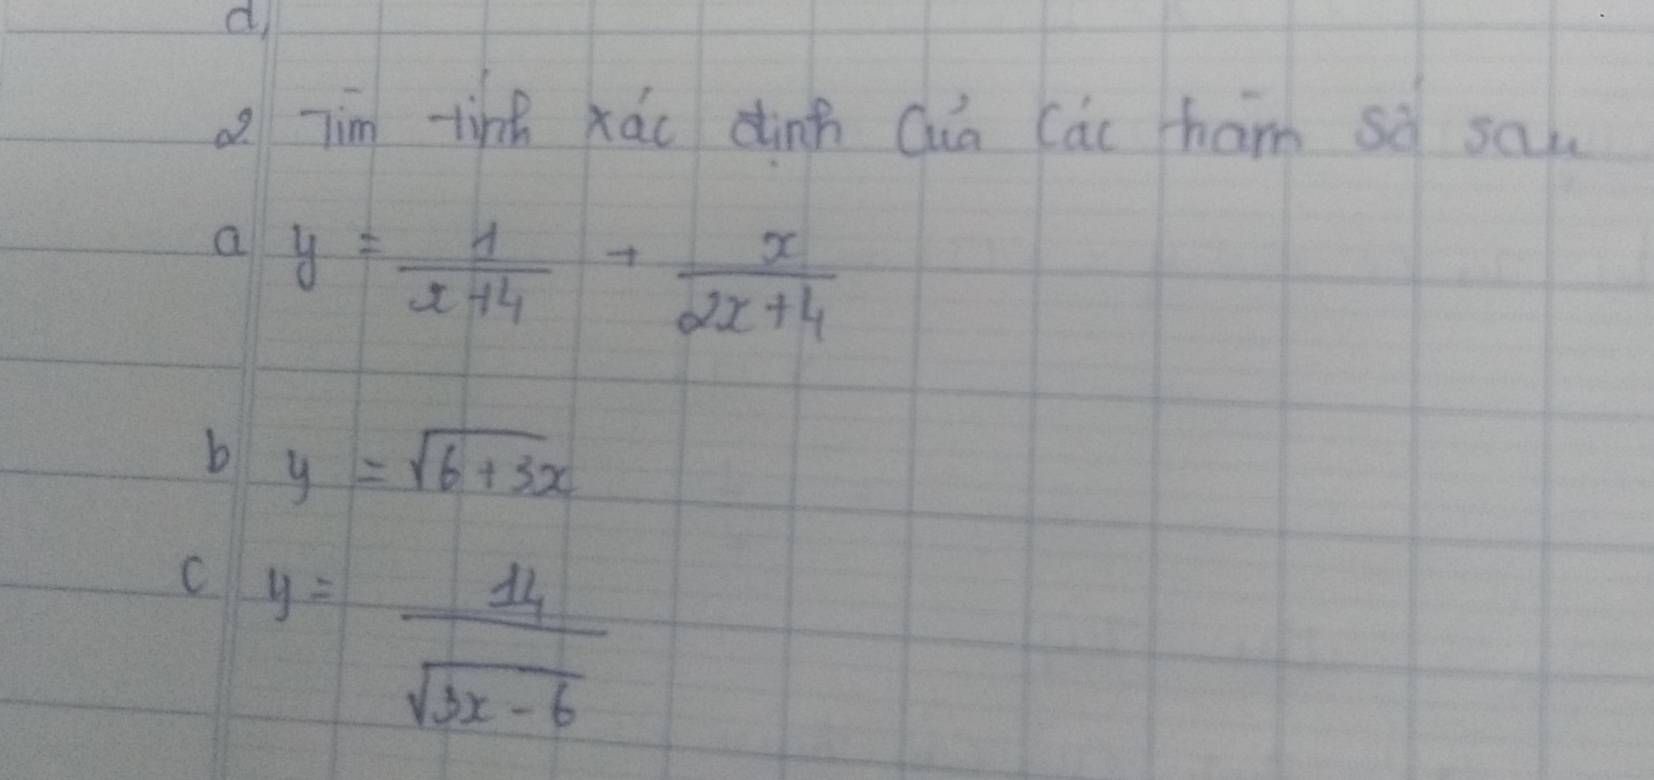 d,
2 Tìm tính xác định của các hàm số sau
a y = 1/(x+4) + x/(2x+4)
b y = √(6+3x)
c y = 14/√(3x-6)